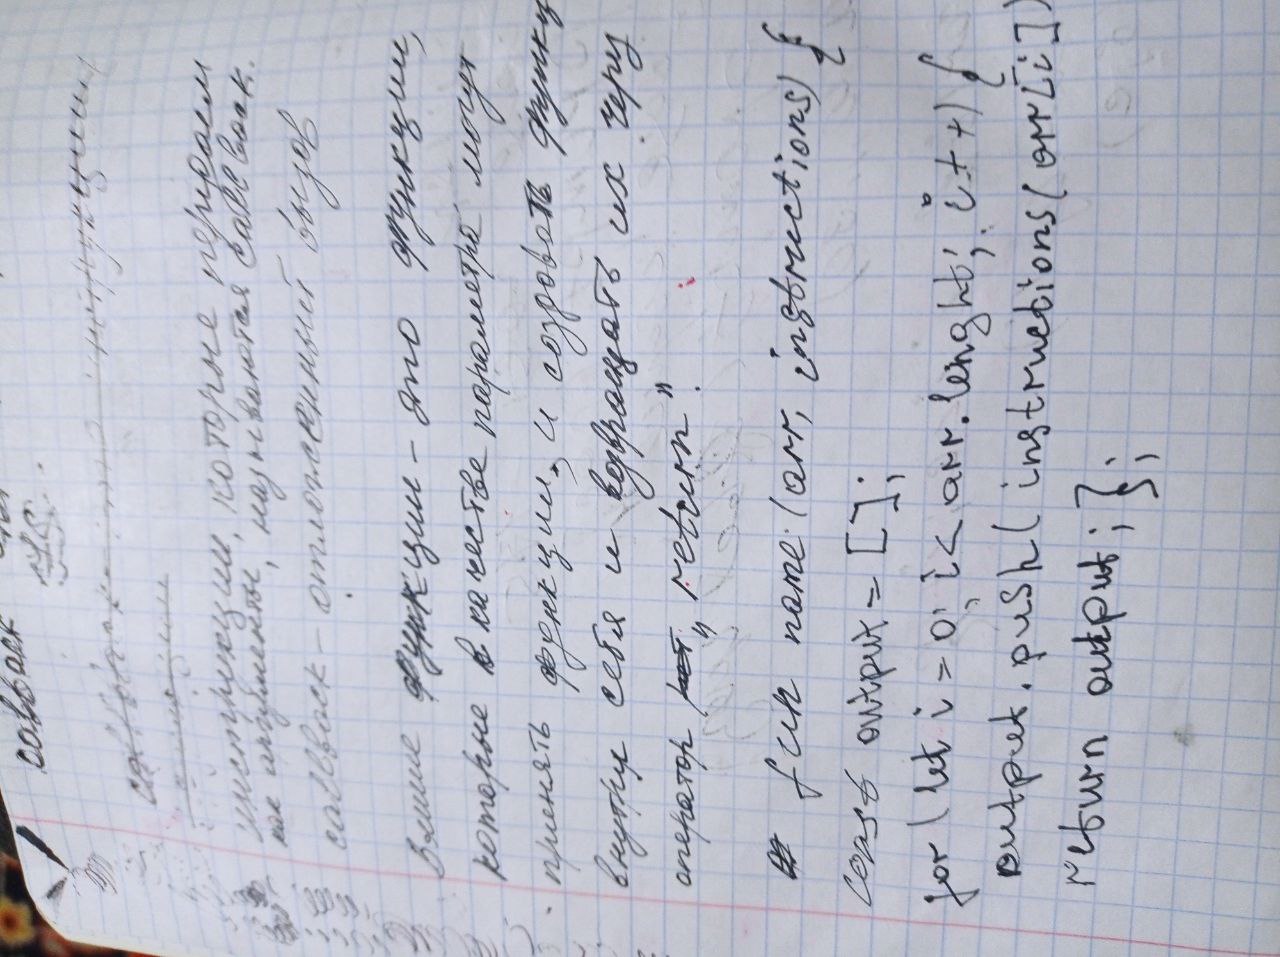 callback
инструкции, которые передаем
как аргументы, называются callback.
callback - отложенный вызов
Высшие функции - это функции,
которые в качестве параметра могут
принять функции, и создовать функц
внутри себя и возвращать их через
оператор „return".
fun name (arr, instructions) {
const output = [];
for (let i = 0; i < arr.lenght; i++) {
output.push(instructions(arr[i])
return output; };